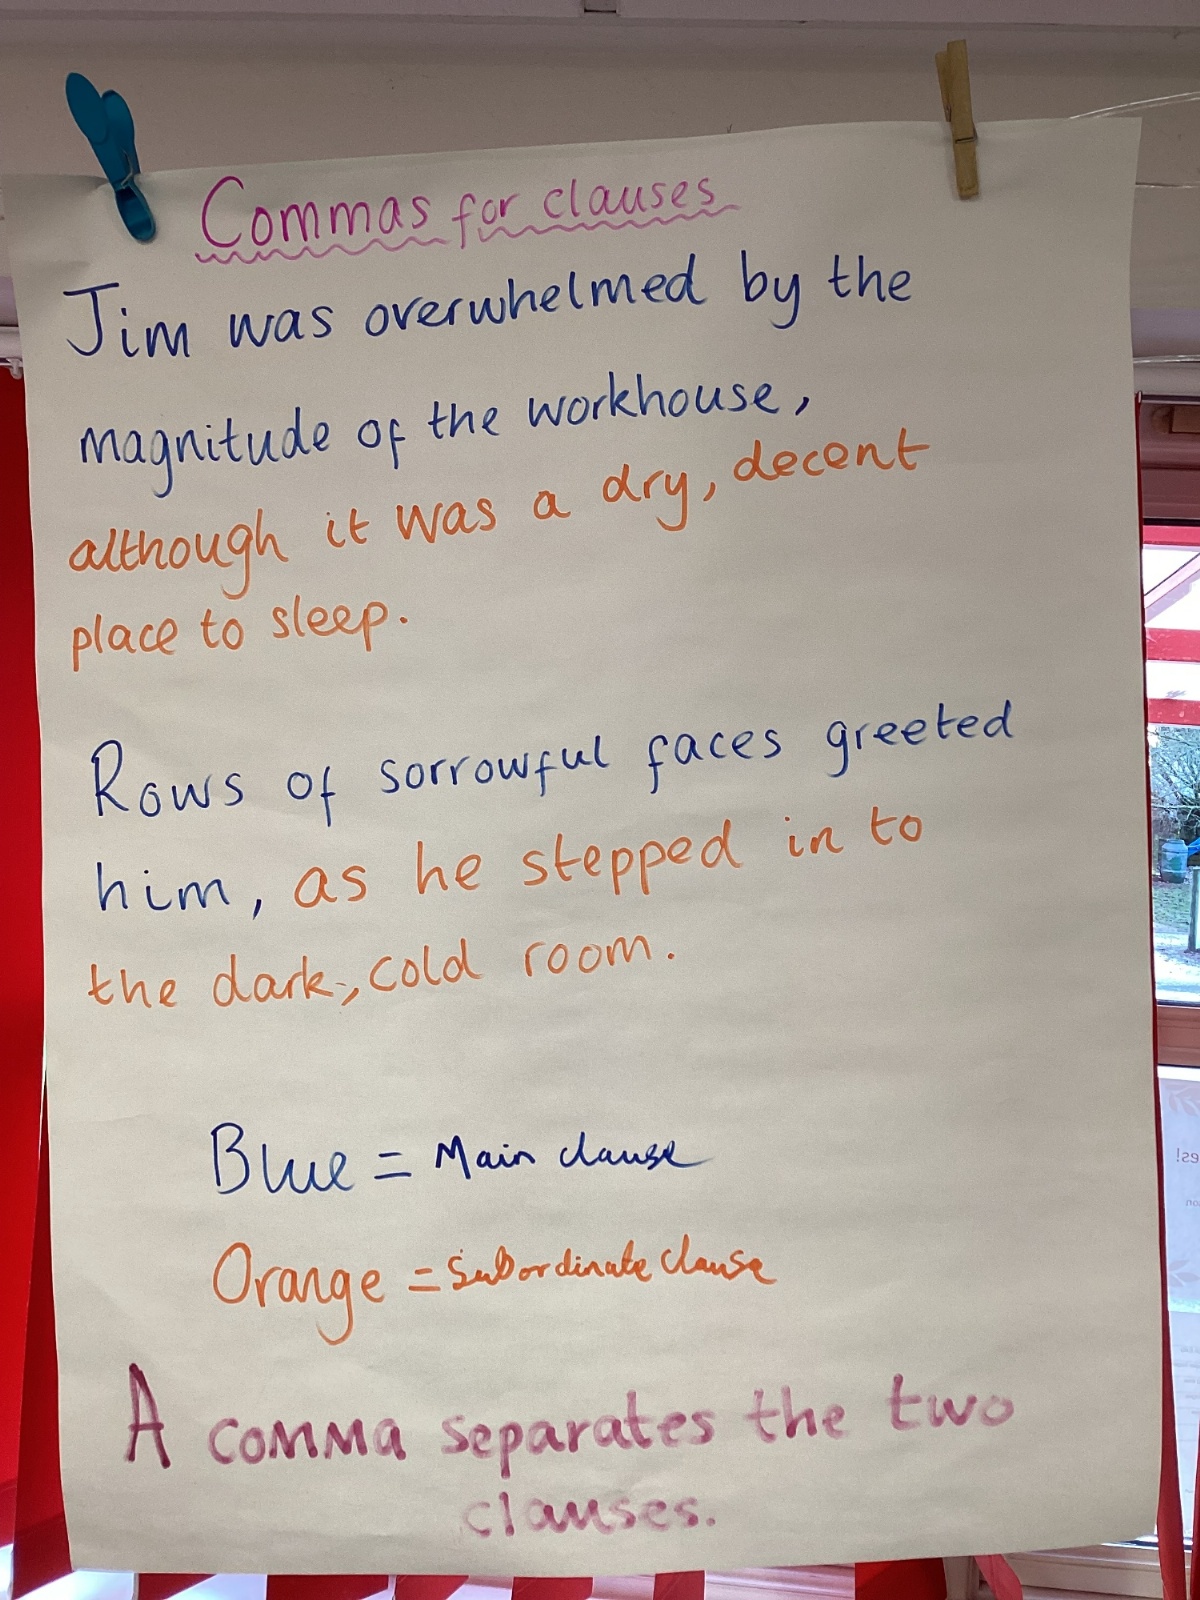 Commas for clauses
Jim was overwhelmed by the
magnitude of the workhouse,
although it was a dry, decent
place to sleep.
Rows of sorrowful faces greeted
him, as he stepped in to
the dark, cold room.
Blue = Main clause
Orange = Subordinate clause
A comma separates the two
clauses.